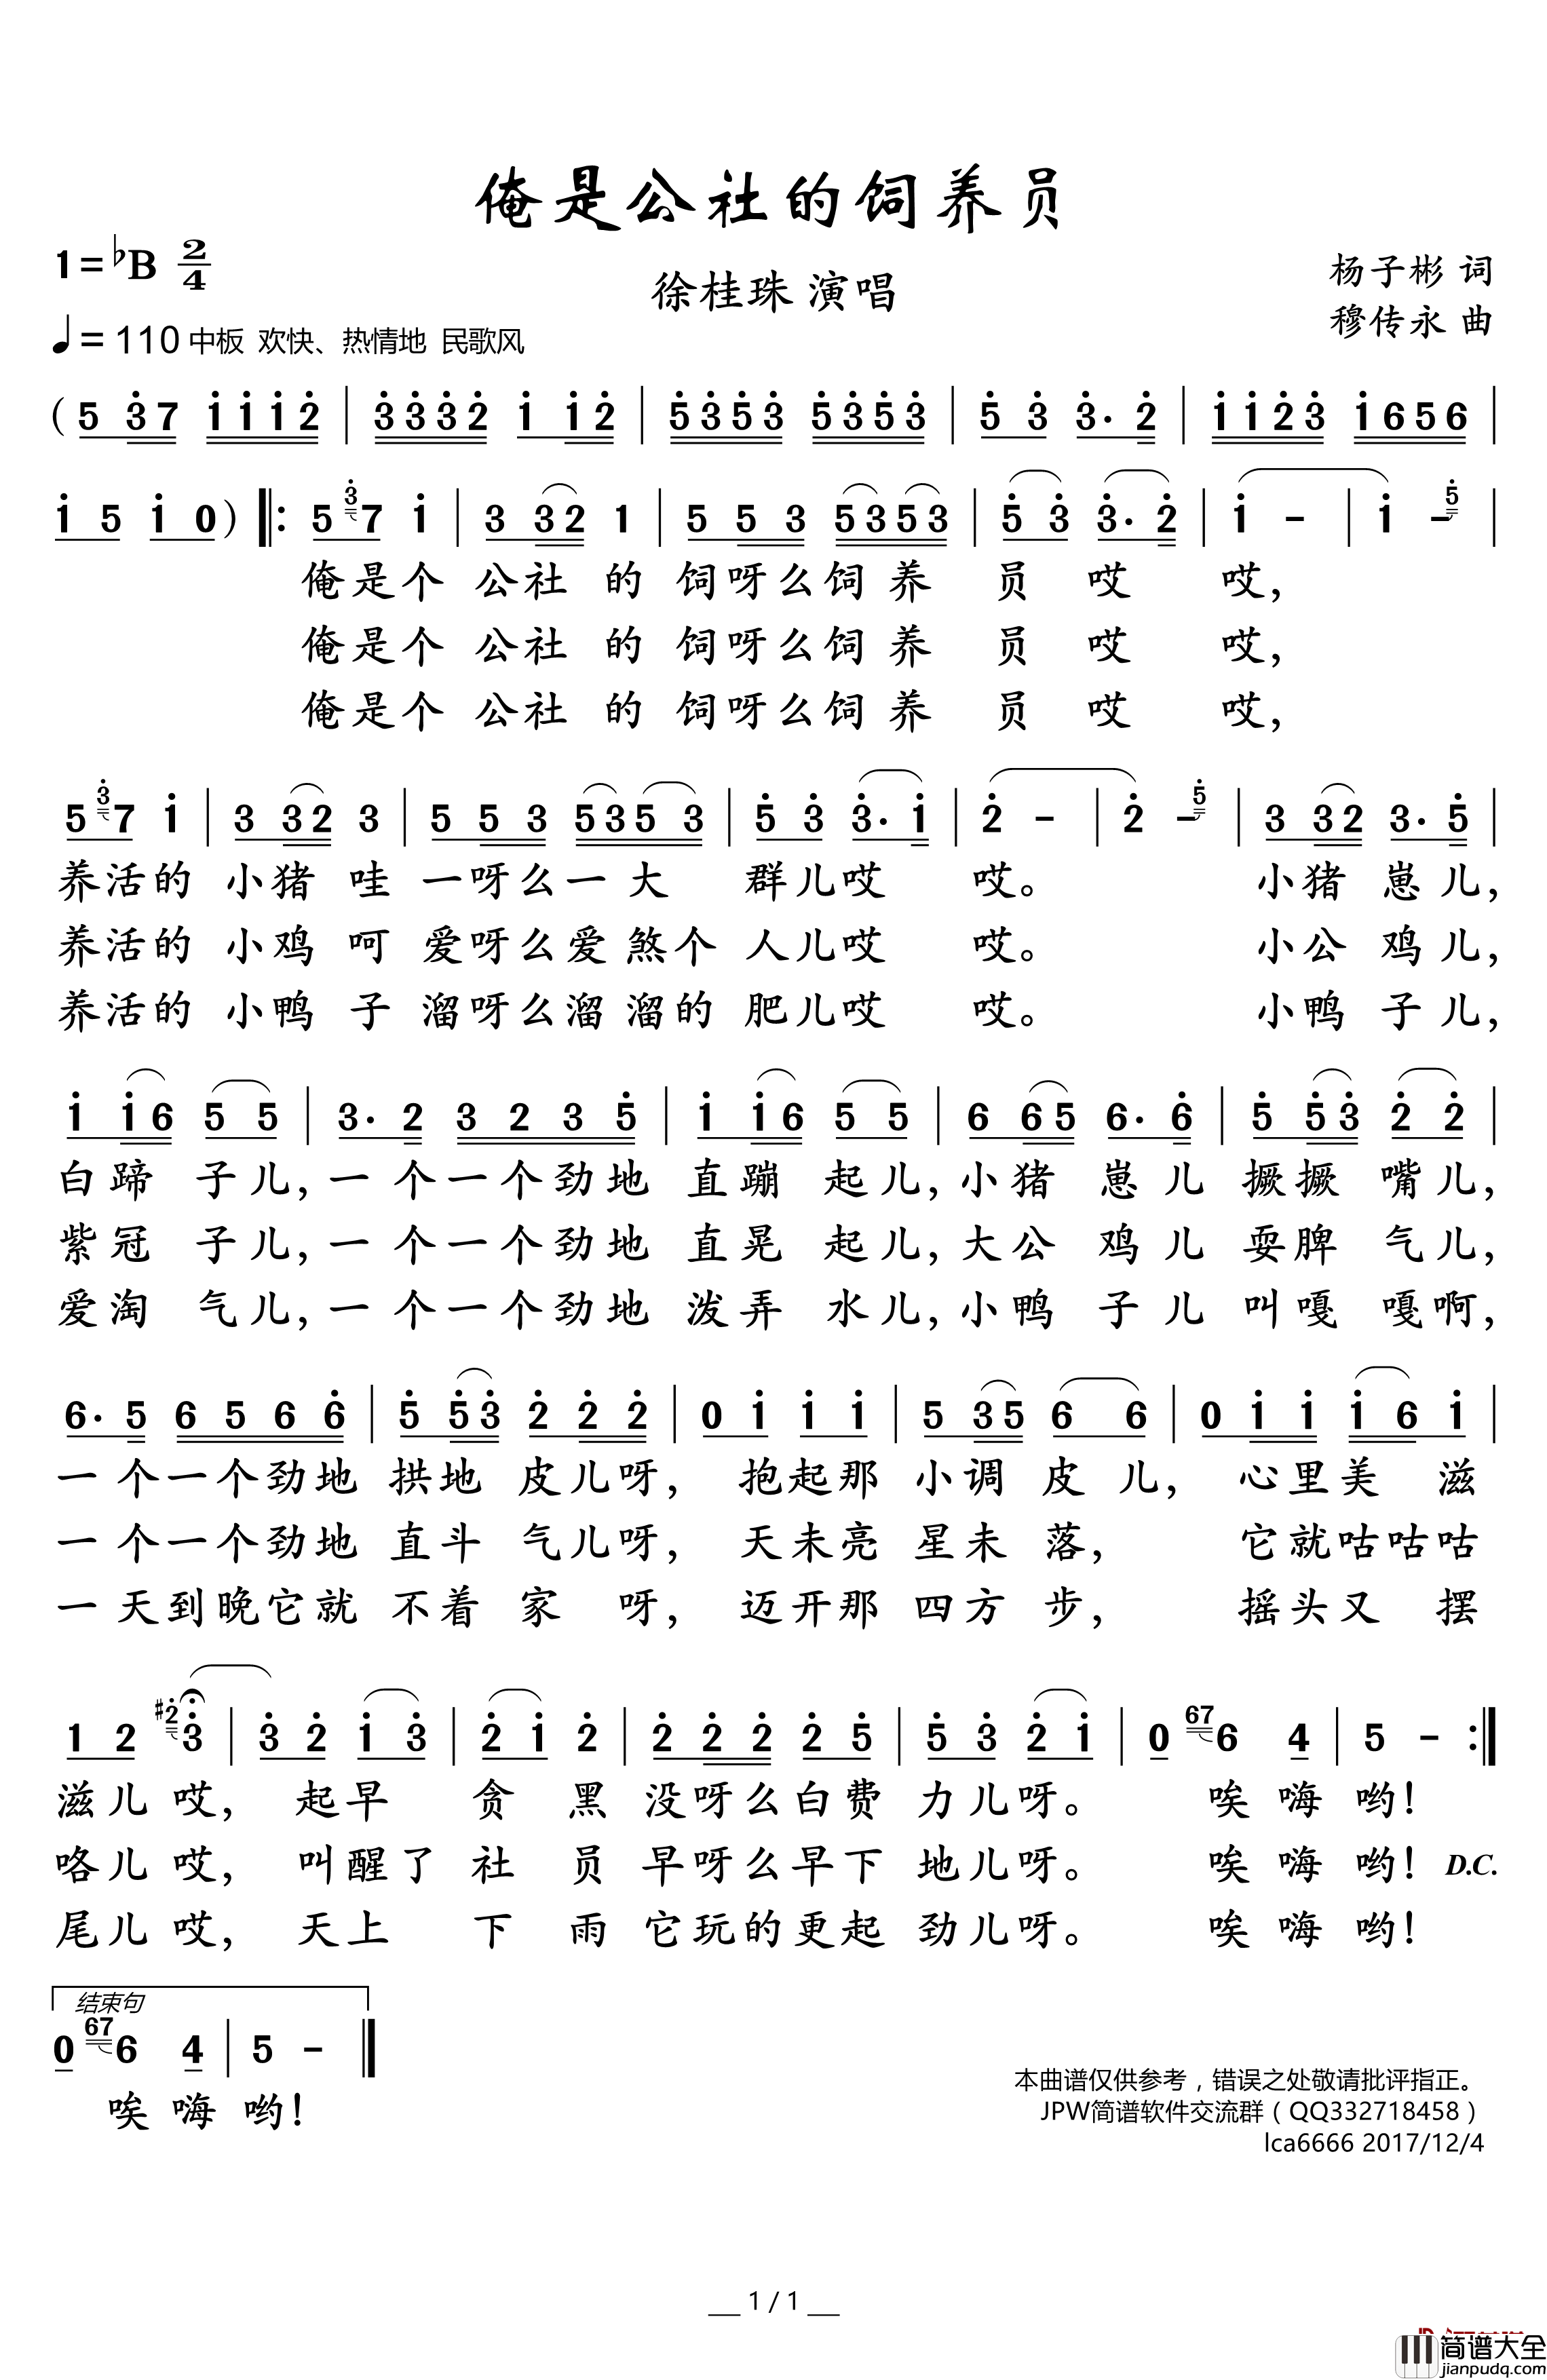 俺是公社的饲养员
1=♭B 2/4
徐桂珠 演唱
杨子彬 词
穆传永 曲
♩= 110 中板 欢快、热情地 民歌风
( 5 3̇ 7 1̇ 1̇ 1̇ 2̇ | 3̇ 3̇ 3̇ 2̇ 1̇ 1̇ 2̇ | 5̇ 3̇ 5̇ 3̇ 5̇ 3̇ 5̇ 3̇ | 5̇ 3̇ 3̇· 2̇ | 1̇ 1̇ 2̇ 3̇ 1̇ 6 5 6 |
1̇ 5 1̇ 0 ) ‖: 5 3̇ 7 1̇ | 3 3 2 1 | 5 5 3 5 3 5 3 | 5̇ 3̇ 3̇· 2̇ | 1̇ - | 1̇ - 5̇ |
俺是个 公社 的 饲呀么饲 养 员 哎 哎,
俺是个 公社 的 饲呀么饲 养 员 哎 哎,
俺是个 公社 的 饲呀么饲 养 员 哎 哎,
5 3̇ 7 1̇ | 3 3 2 3 | 5 5 3 5 3 5 3 | 5̇ 3̇ 3̇· 1̇ | 2̇ - | 2̇ - 5̇ | 3 3 2 3· 5̇ |
养活的 小猪 哇 一呀么一 大 群儿哎 哎。 小猪 崽儿,
养活的 小鸡 呵 爱呀么爱 煞个 人儿哎 哎。 小公 鸡儿,
养活的 小鸭 子 溜呀么溜 溜的 肥儿哎 哎。 小鸭 子儿,
1̇ 1̇ 6 5 5 | 3· 2 3 2 3 5̇ | 1̇ 1̇ 6 5 5 | 6 6 5 6· 6̇ | 5̇ 5̇ 3̇ 2̇ 2̇ |
白蹄 子儿,一 个一个劲地 直蹦 起儿,小猪 崽儿 撅撅 嘴儿,
紫冠 子儿,一 个一个劲地 直晃 起儿,大公 鸡儿 耍脾 气儿,
爱淘 气儿,一 个一个劲地 泼弄 水儿,小鸭 子儿 叫嘎 嘎啊,
6· 5 6 5 6 6̇ | 5̇ 5̇ 3̇ 2̇ 2̇ 2̇ | 0 1̇ 1̇ 1̇ | 5 3 5 6 6 | 0 1̇ 1̇ 1̇ 6 1̇ |
一 个一个劲地 拱地 皮儿呀, 抱起那 小调 皮儿, 心里美 滋
一 个一个劲地 直斗 气儿呀, 天未亮 星未 落, 它就咕咕咕
一 天到晚它就 不着 家 呀, 迈开那 四方 步, 摇头又 摆
1 2 ♯2̇ 3̇ | 3̇ 2̇ 1̇ 3̇ | 2̇ 1̇ 2̇ | 2̇ 2̇ 2̇ 2̇ 5̇ | 5̇ 3̇ 2̇ 1̇ | 0 67 6 4 | 5 - :‖
滋儿 哎, 起早 贪 黑 没呀么白费 力儿呀。 唉 嗨 哟!
咯儿 哎, 叫醒了 社 员 早呀么早下 地儿呀。 唉 嗨 哟! D.C.
尾儿 哎, 天上 下 雨 它玩的更起 劲儿呀。 唉 嗨 哟!
结束句
0 67 6 4 | 5 - ‖
唉 嗨 哟!
本曲谱仅供参考，错误之处敬请批评指正。
JPW简谱软件交流群（QQ332718458）
lca6666 2017/12/4
1 / 1
简谱大全
jianpudq.com